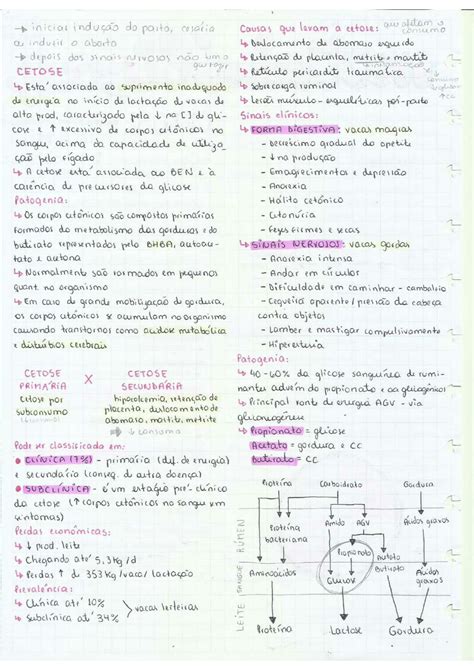 → iniciar indução do parto, cesária
ou induzir o aborto
→ depois dos sinais nervosos não tem o
CETOSE
↳ Está associada ao suprimento inadequado
de energia no início de lactação de vacas de
alto prod, caracterizado pela ↓ na [] de gli-
cose e ↑ excessivo de corpos cetônicos no
sangue, acima da capacidade de utiliza-
ção pelo fígado
↳ A cetose está associada ao BEN e à
carência de precursores da glicose
Patogenia:
↳ Os corpos cetônicos são compostos primários
formados do metabolismo das gorduras e do
butirato representados pelo BHBA, acetoace-
tato e acetona
↳ Normalmente são formados em pequenas
quant. no organismo
↳ Em caso de grande mobilização de gordura,
os corpos cetônicos se acumulam no organismo
causando transtornos como acidose metabólica
e distúrbios cerebrais
CETOSE PRIMÁRIA X CETOSE SECUNDÁRIA
cetose por subconsumo
hipocalcemia, retenção de
placenta, deslocamento de
abomaso, mastite, metrite
↓ consumo
Pode ser classificado em:
• CLÍNICA (7%) - primária (def. de energia)
e secundária (conseq. de outra doença)
• SUBCLÍNICA - é um estágio pré-clínico
da cetose (↑ corpos cetônicos no sangue sem
sintomas)
Perdas econômicas:
↳ ↓ prod. leite
↳ Chegando até 5,3kg/d
↳ Perdas ↑ de 353 kg/vaca/lactação
Prevalência:
↳ Clínica até 10%
↳ Subclínica até 34%
vacas leiteiras
Causas que levam a cetose: que afetam o consumo
↳ Deslocamento de abomaso esquerdo
↳ Retenção de placenta, metrite e mastite
↳ Retículo pericardite traumática
↳ Sobrecarga ruminal
↳ Lesões músculo-esqueléticas pós-parto
↑CC
Sinais clínicos:
↳ FORMA DIGESTIVA: vacas magras
- Decréscimo gradual do apetite
- ↓ na produção
- Emagrecimento e depressão
- Anorexia
- Hálito cetônico
- Cetonúria
- Fezes firmes e secas
↳ SINAIS NERVOSOS: vacas gordas
- Anorexia intensa
- Andar em círculos
- Dificuldade em caminhar - cambaleio
- Cegueira aparente / pressão da cabeça
contra objetos
- Lamber e mastigar compulsivamente
- Hiperestesia
Patogenia:
↳ 40-60% da glicose sanguínea de rumi-
nantes advém do propionato e aa glicogênicos
↳ Principal fonte de energia AGV - via
gliconeogênese
↳ Propionato = glicose
Acetato = gordura e CC
Butirato = CC
Proteína Carboidrato Gordura
RÚMEN
Proteína bacteriana
Amido AGV
Ácidos graxos
SANGUE
Propionato
Acetato
Butirato
Aminoácidos
Glicose
Ácidos graxos
LEITE
Proteína Lactose Gordura